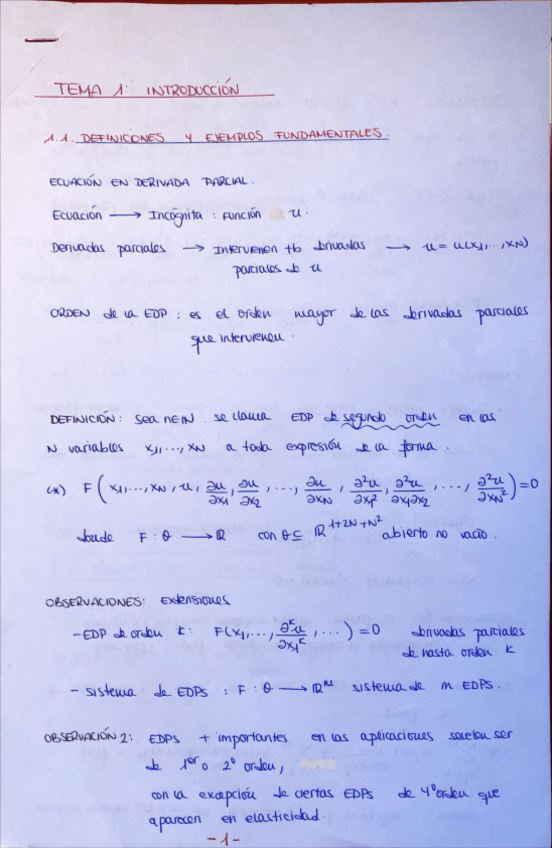 TEMA 1: INTRODUCCIÓN
1.1. DEFINICIONES Y EJEMPLOS FUNDAMENTALES.
ECUACIÓN EN DERIVADA PARCIAL.
Ecuación → Incógnita: función u.
Derivadas parciales → Intervienen tb derivadas → u = u(x₁,...,x_N)
parciales de u
ORDEN de la EDP: es el orden mayor de las derivadas parciales
que intervienen.
DEFINICIÓN: sea n∈ℕ. se llama EDP de segundo orden en las
N variables x₁,...,x_N a toda expresión de la forma.
(*) F(x₁,...,x_N, u, ∂u/∂x₁, ∂u/∂x₂, ..., ∂u/∂x_N, ∂²u/∂x₁², ∂²u/∂x₁∂x₂, ..., ∂²u/∂x_N²) = 0
donde F: θ → ℝ con θ ⊆ ℝ^(1+2N+N²) abierto no vacío.
OBSERVACIONES: Extensiones
- EDP de orden k: F(x₁,..., ∂ᵏu/∂x₁ᵏ, ...) = 0 derivadas parciales
de hasta orden k
- sistema de EDPs: F: θ → ℝᵐ sistema de m EDPs.
OBSERVACIÓN 2: EDPs + importantes en las aplicaciones suelen ser
de 1er o 2º orden,
con la excepción de ciertas EDPs de 4º orden que
aparecen en elasticidad.
-1-